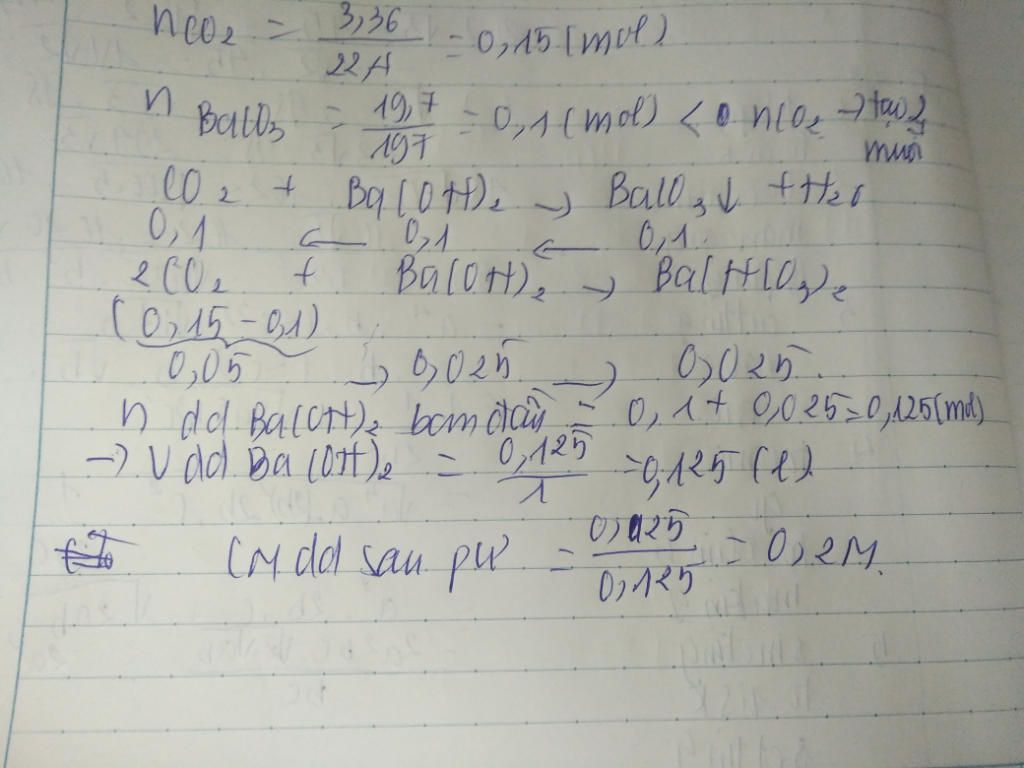 nCO₂ = 3,36 / 22,4 = 0,15 (mol)
n BaCO₃ = 19,7 / 197 = 0,1 (mol) < nCO₂ → tạo 2 muối
CO₂ + Ba(OH)₂ → BaCO₃↓ + H₂O
0,1 ← 0,1 ← 0,1
2CO₂ + Ba(OH)₂ → Ba(HCO₃)₂
(0,15 - 0,1)
0,05 → 0,025 → 0,025
n dd Ba(OH)₂ ban đầu = 0,1 + 0,025 = 0,125 (mol)
→ V dd Ba(OH)₂ = 0,125 / 1 = 0,125 (l)
CM dd sau pư = 0,025 / 0,125 = 0,2M.